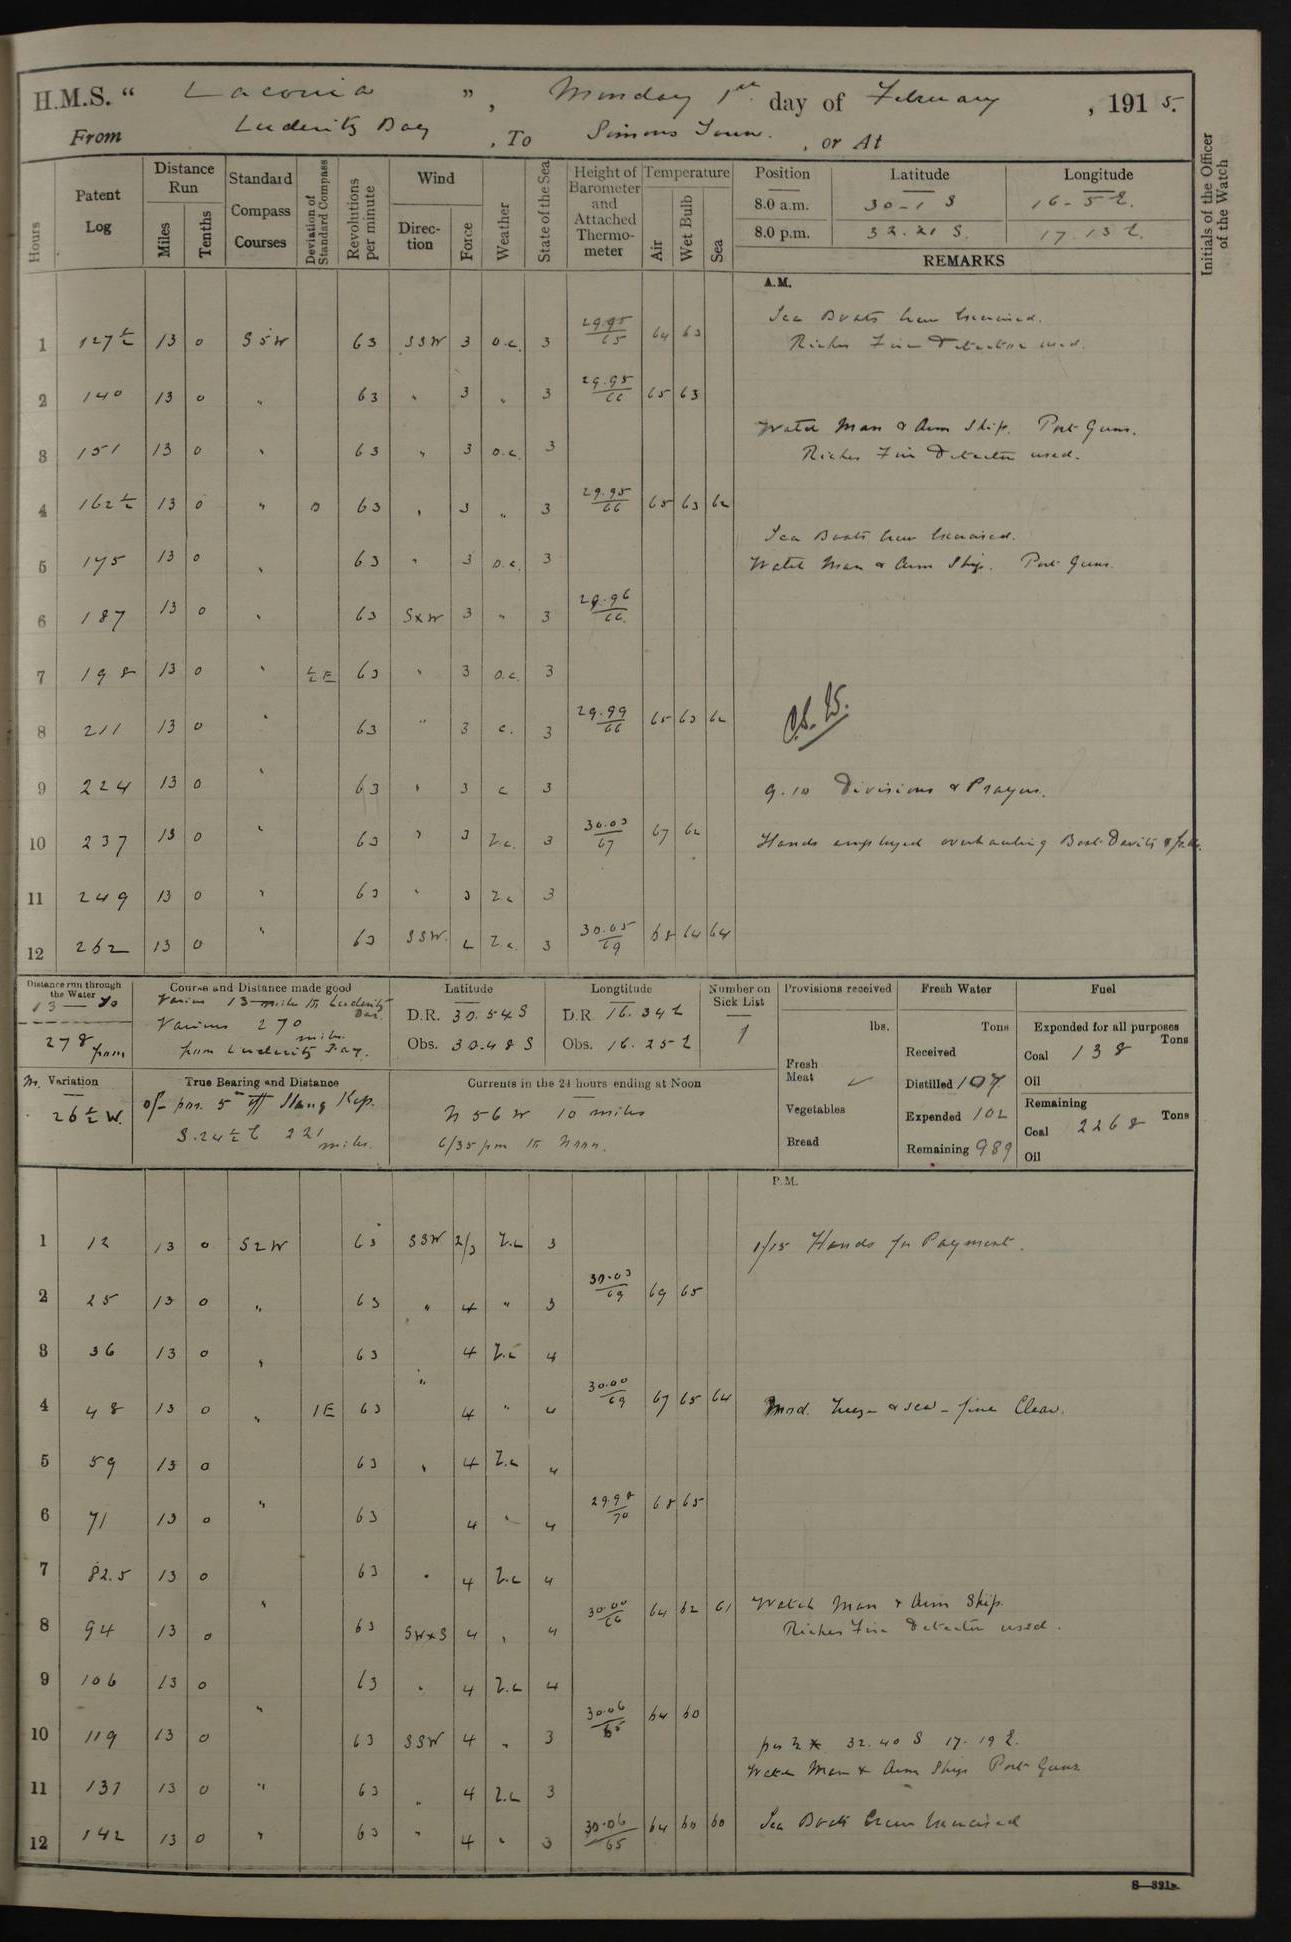 H.M.S. “ Laconia ”, Monday 1st day of February, 1915.
From Luderitz Bay, To Simons Town. , or At
Hours
Patent Log
Distance Run
Miles
Tenths
Standard Compass Courses
Deviation of Standard Compass
Revolutions per minute
Wind
Direction
Force
Weather
State of the Sea
Height of Barometer and Attached Thermometer
Temperature
Air
Wet Bulb
Sea
Position Latitude Longitude
8.0 a.m. 30-1 S 16-5 E.
8.0 p.m. 32.21 S. 17.13 E.
REMARKS
Initials of the Officer of the Watch
A.M.
Sea Boats Crew Exercised.
1 127½ 13 0 S5W 63 SSW 3 o.c. 3 29.95/65 64 63 Riches Fire Detector used.
2 140 13 0 " 63 " 3 " 3 29.95/66 65 63
Watch Man & Arm Ship. Port Guns.
3 151 13 0 " 63 " 3 o.c. 3 Riches Fire Detector used.
4 162½ 13 0 " 0 63 " 3 " 3 29.95/66 65 63 62
Sea Boats Crew Exercised.
5 175 13 0 " 63 " 3 o.c. 3 Watch Man & Arm Ship. Port Guns.
6 187 13 0 " 63 SxW 3 " 3 29.96/66
7 198 13 0 " ½E 63 " 3 o.c. 3
8 211 13 0 " 63 " 3 c. 3 29.99/66 65 63 62
9 224 13 0 " 63 " 3 c 3 9.10 Divisions & Prayers.
10 237 13 0 " 63 " 3 b.c. 3 30.03/67 67 62 Hands employed overhauling Boat Davits & falls.
11 249 13 0 " 63 " 3 b.c 3
12 262 13 0 " 63 SSW. 2 b.c. 3 30.05/69 68 64 64
Distance run through the Water
13 — to
278 from
Course and Distance made good
Various 13 miles to Luderitz Bay.
Various 270 miles
from Luderitz Bay.
Latitude
D.R. 30.54 S
Obs. 30.48 S
Longtitude
D.R. 16.34 E
Obs. 16.25 E
Number on Sick List
1
Provisions received
lbs.
Fresh Meat
Vegetables
Bread
Fresh Water
Tons
Received
Distilled 107
Expended 102
Remaining 989
Fuel
Expended for all purposes
Tons
Coal 138
Oil
Remaining
Tons
Coal 2268
Oil
M. Variation
26½ W.
True Bearing and Distance
of posn. 5" off Slang Kop.
S.24½ E 221 miles.
Currents in the 24 hours ending at Noon
N 56 W 10 miles
6/35 pm to Noon.
P.M.
1 12 13 0 S2W 63 SSW 2/3 b.c 3 1/15 Hands for Payment.
2 25 13 0 " 63 " 4 " 3 30.03/69 69 65
3 36 13 0 " 63 " 4 b.c 4
4 48 13 0 " 1E 63 4 " 4 30.00/69 67 65 64 Mod. breeze & sea - fine Clear.
5 59 13 0 63 " 4 b.c 4
6 71 13 0 " 63 4 " 4 29.98/70 68 65
7 82.5 13 0 63 " 4 b.c 4
Watch Man & Arm Ship.
8 94 13 0 " 63 SWxS 4 " 4 30.00/66 64 62 61 Riches Fire Detector used.
9 106 13 0 63 " 4 b.c 4
10 119 13 0 " 63 SSW 4 " 3 30.06/65 64 60 32.40 S 17.19 E.
Watch Man & Arm Ship Port Guns
11 131 13 0 " 63 " 4 b.c 3
12 142 13 0 " 63 " 4 " 3 30.06/65 64 60 60 Sea Boats Crew Exercised